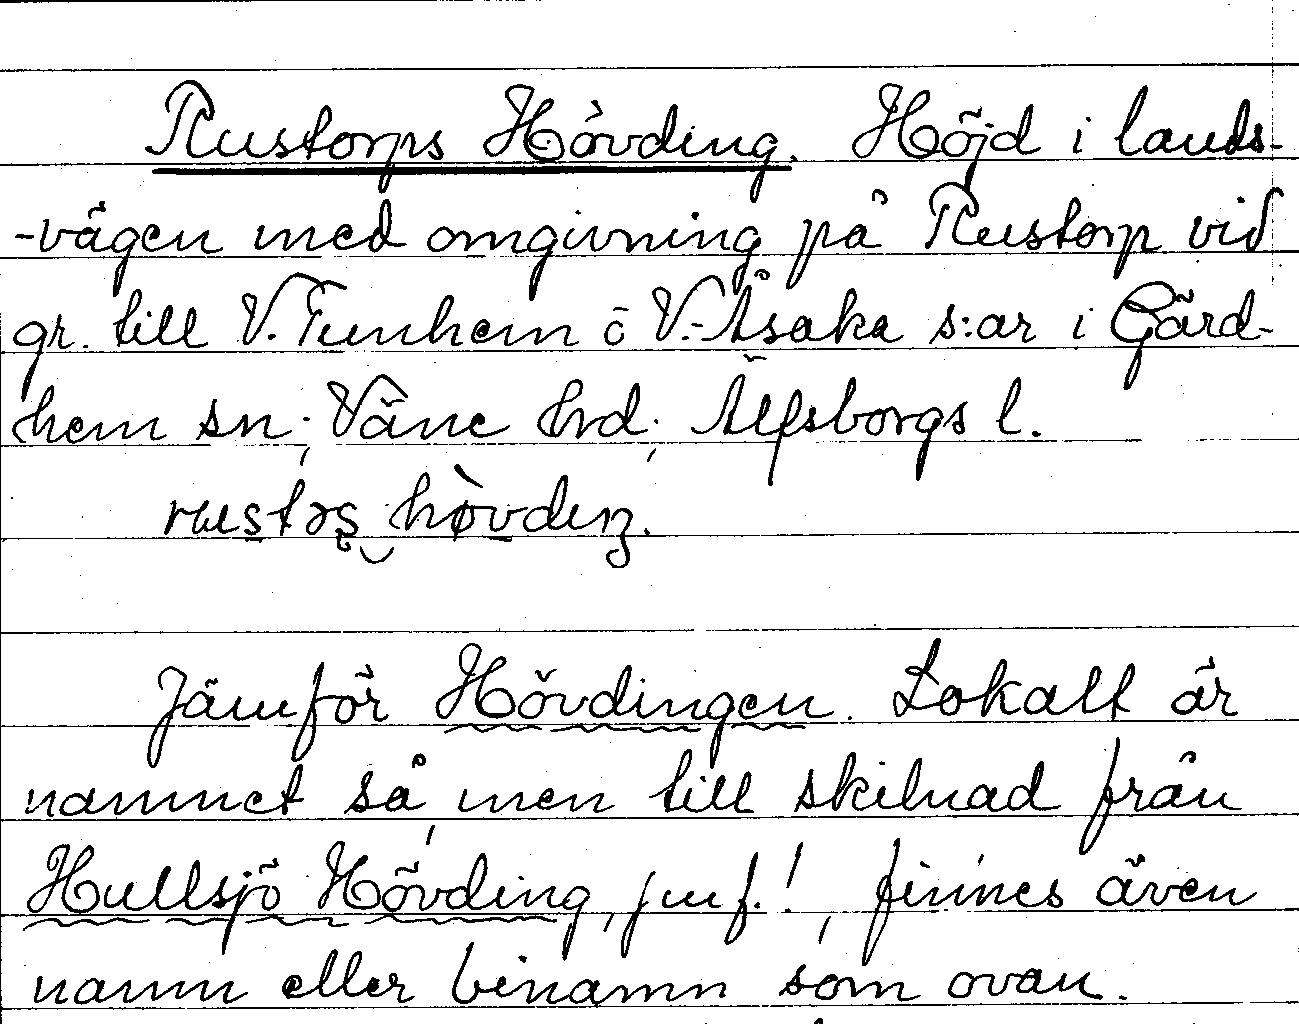 Rustorps Hövding. Höjd i lands-
-vägen med omgivning på Rustorp vid
gr. till V. Tunhem o V.-Åsaka s:ar i Gärd-
hem sn; Väne hrd; Älfsborgs l.
hövding.
Jämför Hövdingen. Lokalt är
namnet så, men till skilnad från
Hullsjö Hövding, jmf.!, finnes även
namn eller binamn som ovan.